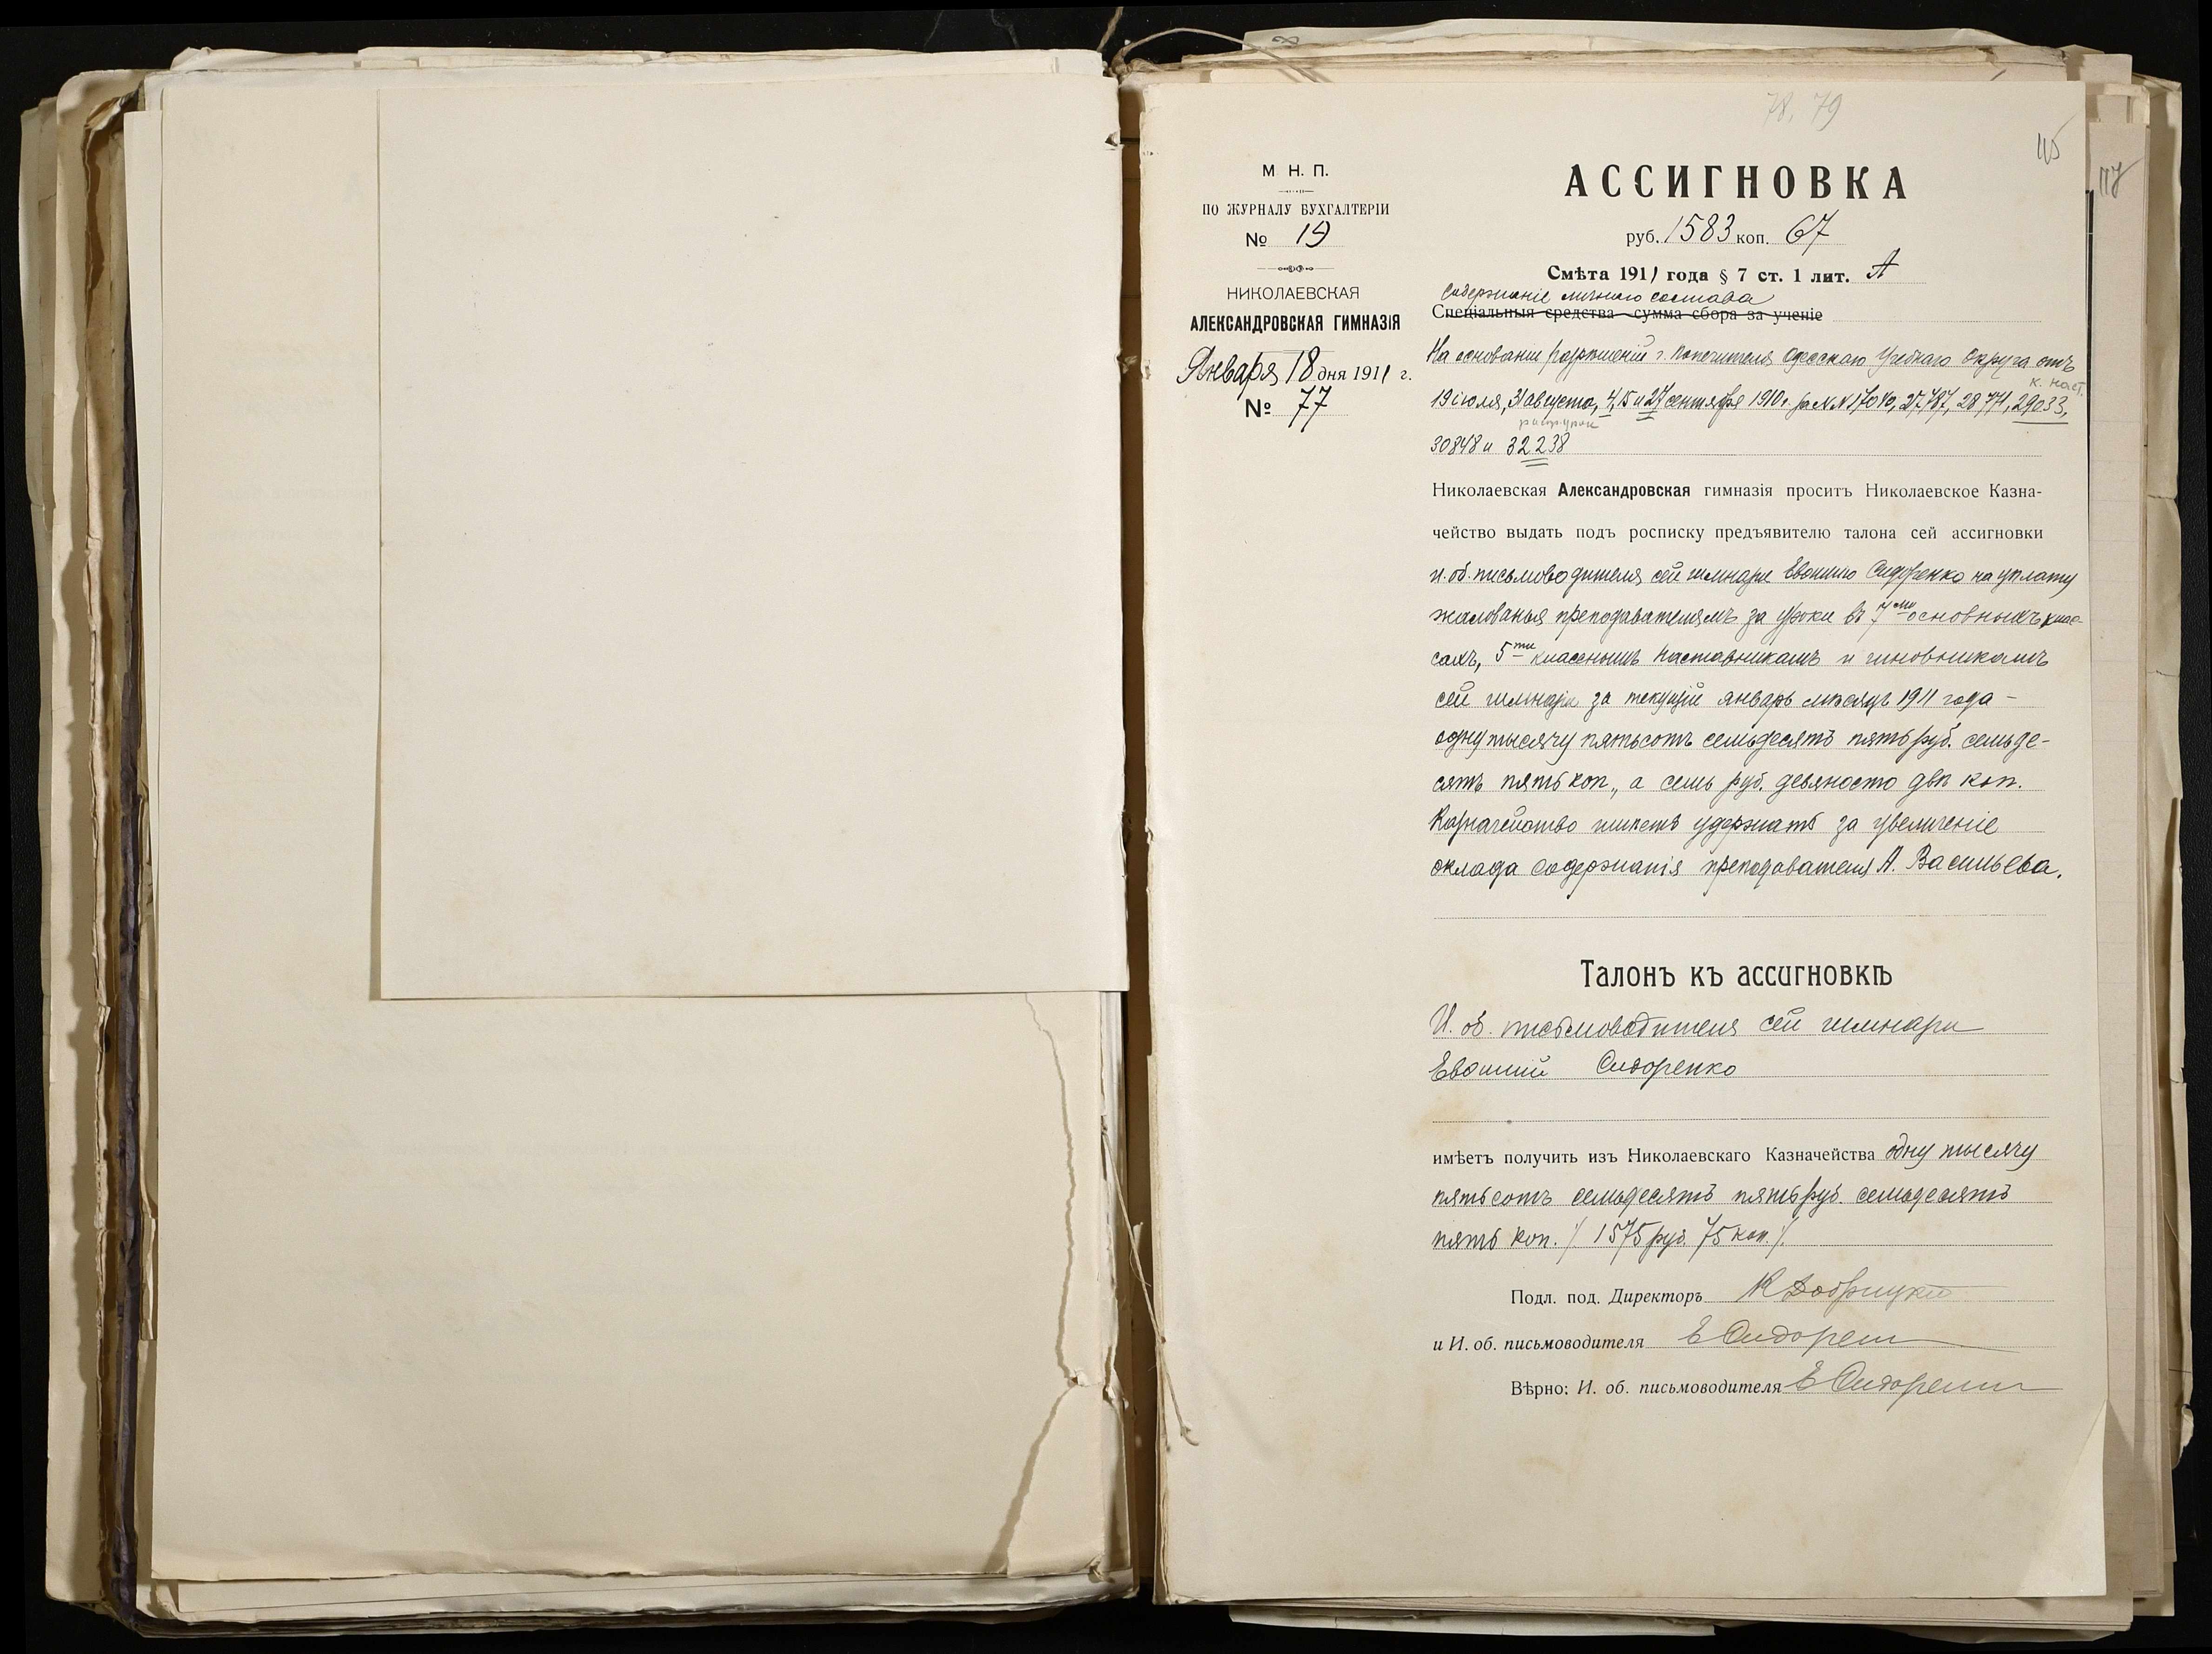 78, 79
115
117
М Н. П.
ПО ЖУРНАЛУ БУХГАЛТЕРІИ
№ 19
НИКОЛАЕВСКАЯ
АЛЕКСАНДРОВСКАЯ ГИМНАЗІЯ
Января 18 дня 1911 г.
№ 77
АССИГНОВКА
руб. 1583 коп. 67
Смѣта 1911 года § 7 ст. 1 лит. А
Содержаніе личнаго состава
Спеціальныя средства сумма сбора за ученіе
На основаніи разрѣшеній г. Попечителя Одесскаго Учебнаго Округа отъ
к. наст.
19 іюля, 31 августа, 4, 15 и 27 сентября 1910 г. за №№ 17040, 27787, 28771, 29033,
30848 и 32238
Николаевская Александровская гимназія проситъ Николаевское Казна-
чейство выдать подъ росписку предъявителю талона сей ассигновки
и. об. письмоводителя сей гимназіи Евфимію Сидоренко на уплату
жалованья преподавателямъ за уроки въ 7ми основныхъ клас-
сахъ, 5ти класснымъ наставникамъ и чиновникамъ
сей гимназіи за текущій январь мѣсяцъ 1911 года –
одну тысячу пятьсотъ семьдесятъ пять руб. семьде-
сятъ пять коп., а семь руб. девяносто двѣ коп.
Казначейство имѣетъ удержать за увеличеніе
оклада содержанія преподавателя А. Васильева.
Талонъ къ ассигновкѣ
И. об. письмоводителя сей гимназіи
Евфимій Сидоренко
имѣетъ получить изъ Николаевскаго Казначейства одну тысячу
пятьсотъ семьдесятъ пять руб. семьдесятъ
пять коп. /. 1575 руб. 75 коп. /.
Подл. под. Директоръ
и И. об. письмоводителя Е Сидоренко
Вѣрно: И. об. письмоводителя Е Сидоренко